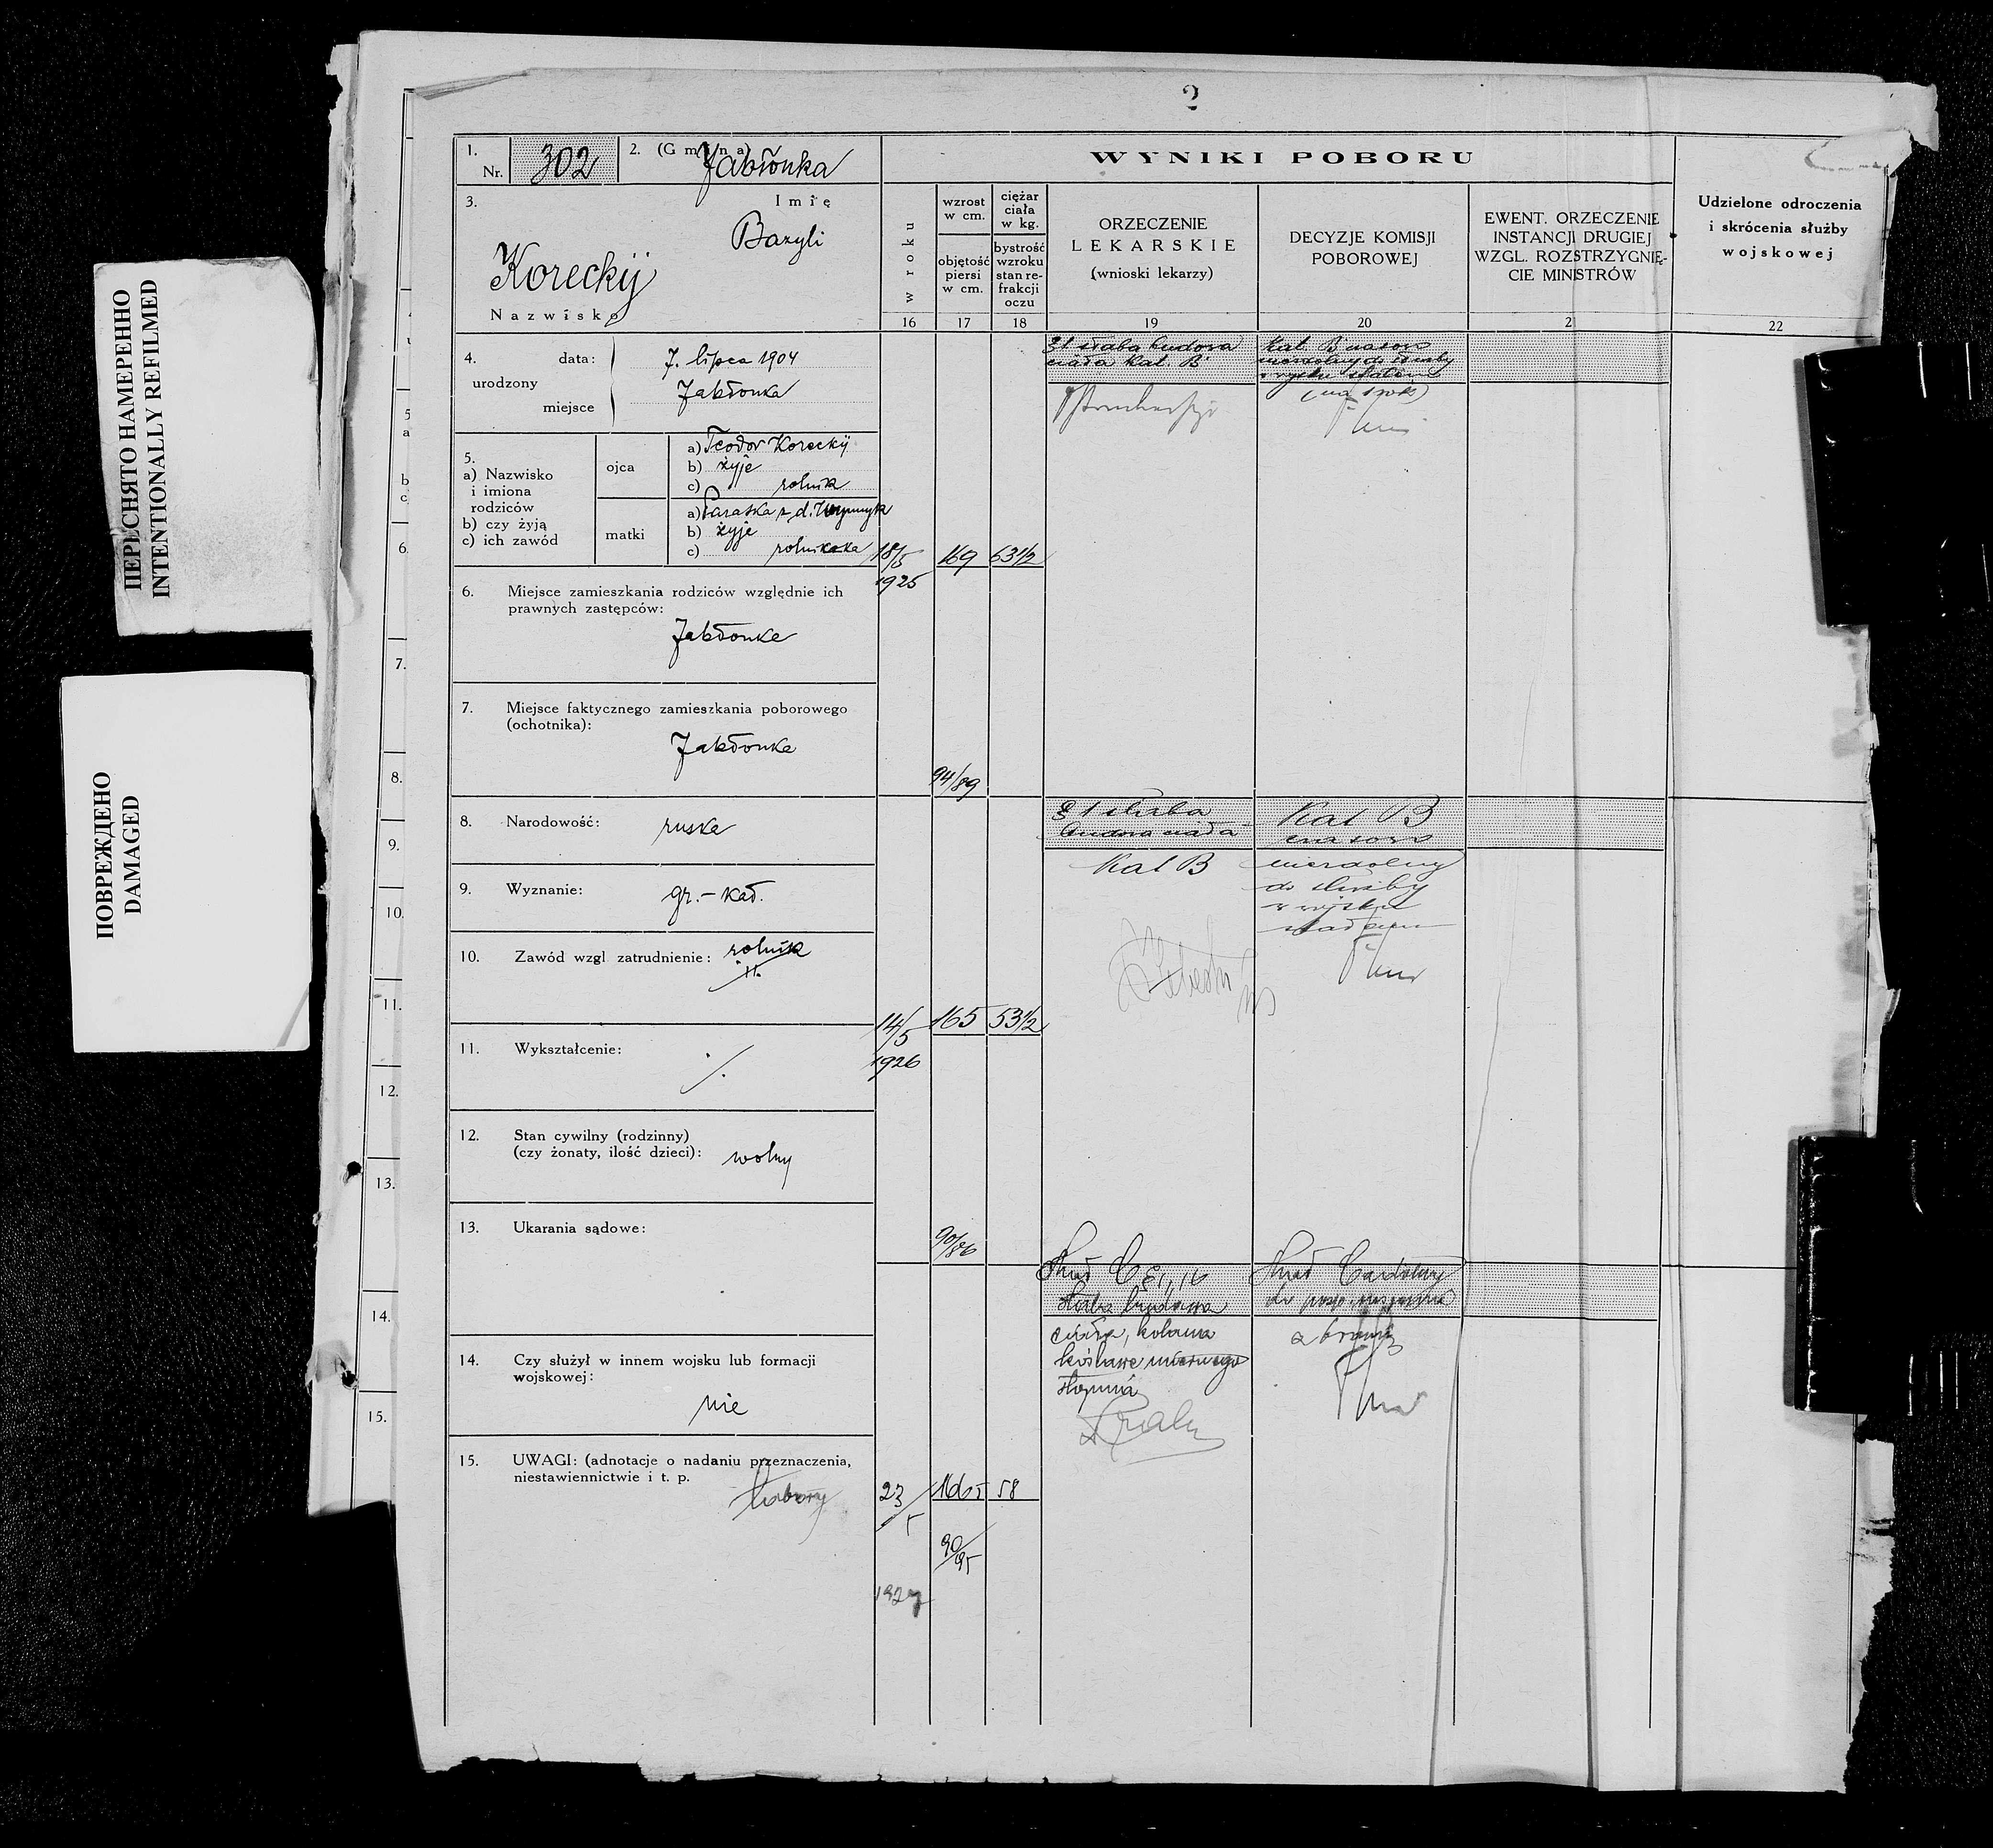 2
1.
Nr. 302
2. (Gmina) Jabłonka
3. Imię
Bazyli
Koreckij
Nazwisko
4. data: 7. lipca 1904
urodzony
miejsce Jabłonka
5.
a) Nazwisko
i imiona
rodziców
b) czy żyją
c) ich zawód
ojca
a) Teodor Koreckij
b) żyje
c) rolnik
matki
a) Paraska z d.
b) żyje
c) rolniczka
6. Miejsce zamieszkania rodziców względnie ich
prawnych zastępców:
Jabłonka
7. Miejsce faktycznego zamieszkania poborowego
(ochotnika):
Jabłonka
8. Narodowość: ruska
9. Wyznanie: gr.-kat.
10. Zawód wzgl zatrudnienie: rolnik
11. Wykształcenie: ./.
12. Stan cywilny (rodzinny)
(czy żonaty, ilość dzieci): wolny
13. Ukarania sądowe:
14. Czy służył w innem wojsku lub formacji
wojskowej:
nie
15. UWAGI: (adnotacje o nadaniu przeznaczenia,
niestawiennictwie i t. p.
WYNIKI POBORU
w roku
wzrost
w cm.
objętość
piersi
w cm.
ciężar
ciała
w kg.
bystrość
wzroku
stan re-
frakcji
oczu
ORZECZENIE
LEKARSKIE
(wnioski lekarzy)
DECYZJE KOMISJI
POBOROWEJ
EWENT. ORZECZENIE
INSTANCJI DRUGIEJ
WZGL. ROZSTRZYGNIĘ-
CIE MINISTRÓW
Udzielone odroczenia
i skrócenia służby
wojskowej
16 17 18 19 20 21 22
18/5 169 63 1/2
1925
94/89
§1 słaba budowa
ciała Kat. B
Kat. B czasowo
niezdolny do służby
w wojsku stałem
(na 1 rok)
14/5 165 53 1/2
1926
90/86
§ 1 słaba
budowa ciała
Kat B
Kat B
czasowo
niezdolny
do służby
w wojsku
stałem
23/5 1665 58
90/95
1927
słaba budowa
ciała, kolana
koślawe miernego
stopnia
z bronią
5
a
b
c
6.
7.
8.
9.
10.
11.
12.
13.
14.
15.
ПЕРЕСНЯТО НАМЕРЕННО
INTENTIONALLY REFILMED
ПОВРЕЖДЕНО
DAMAGED